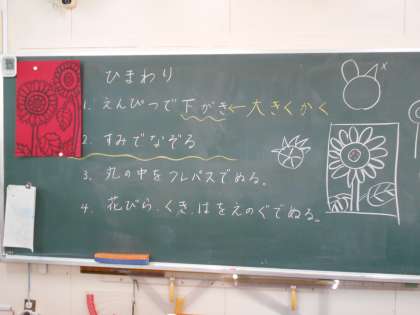 ひまわり
1. えんぴつで下がき←大きくかく
2. すみでなぞる
3. 丸の中をクレパスでぬる。
4. 花びら、くき、はをえのぐでぬる。